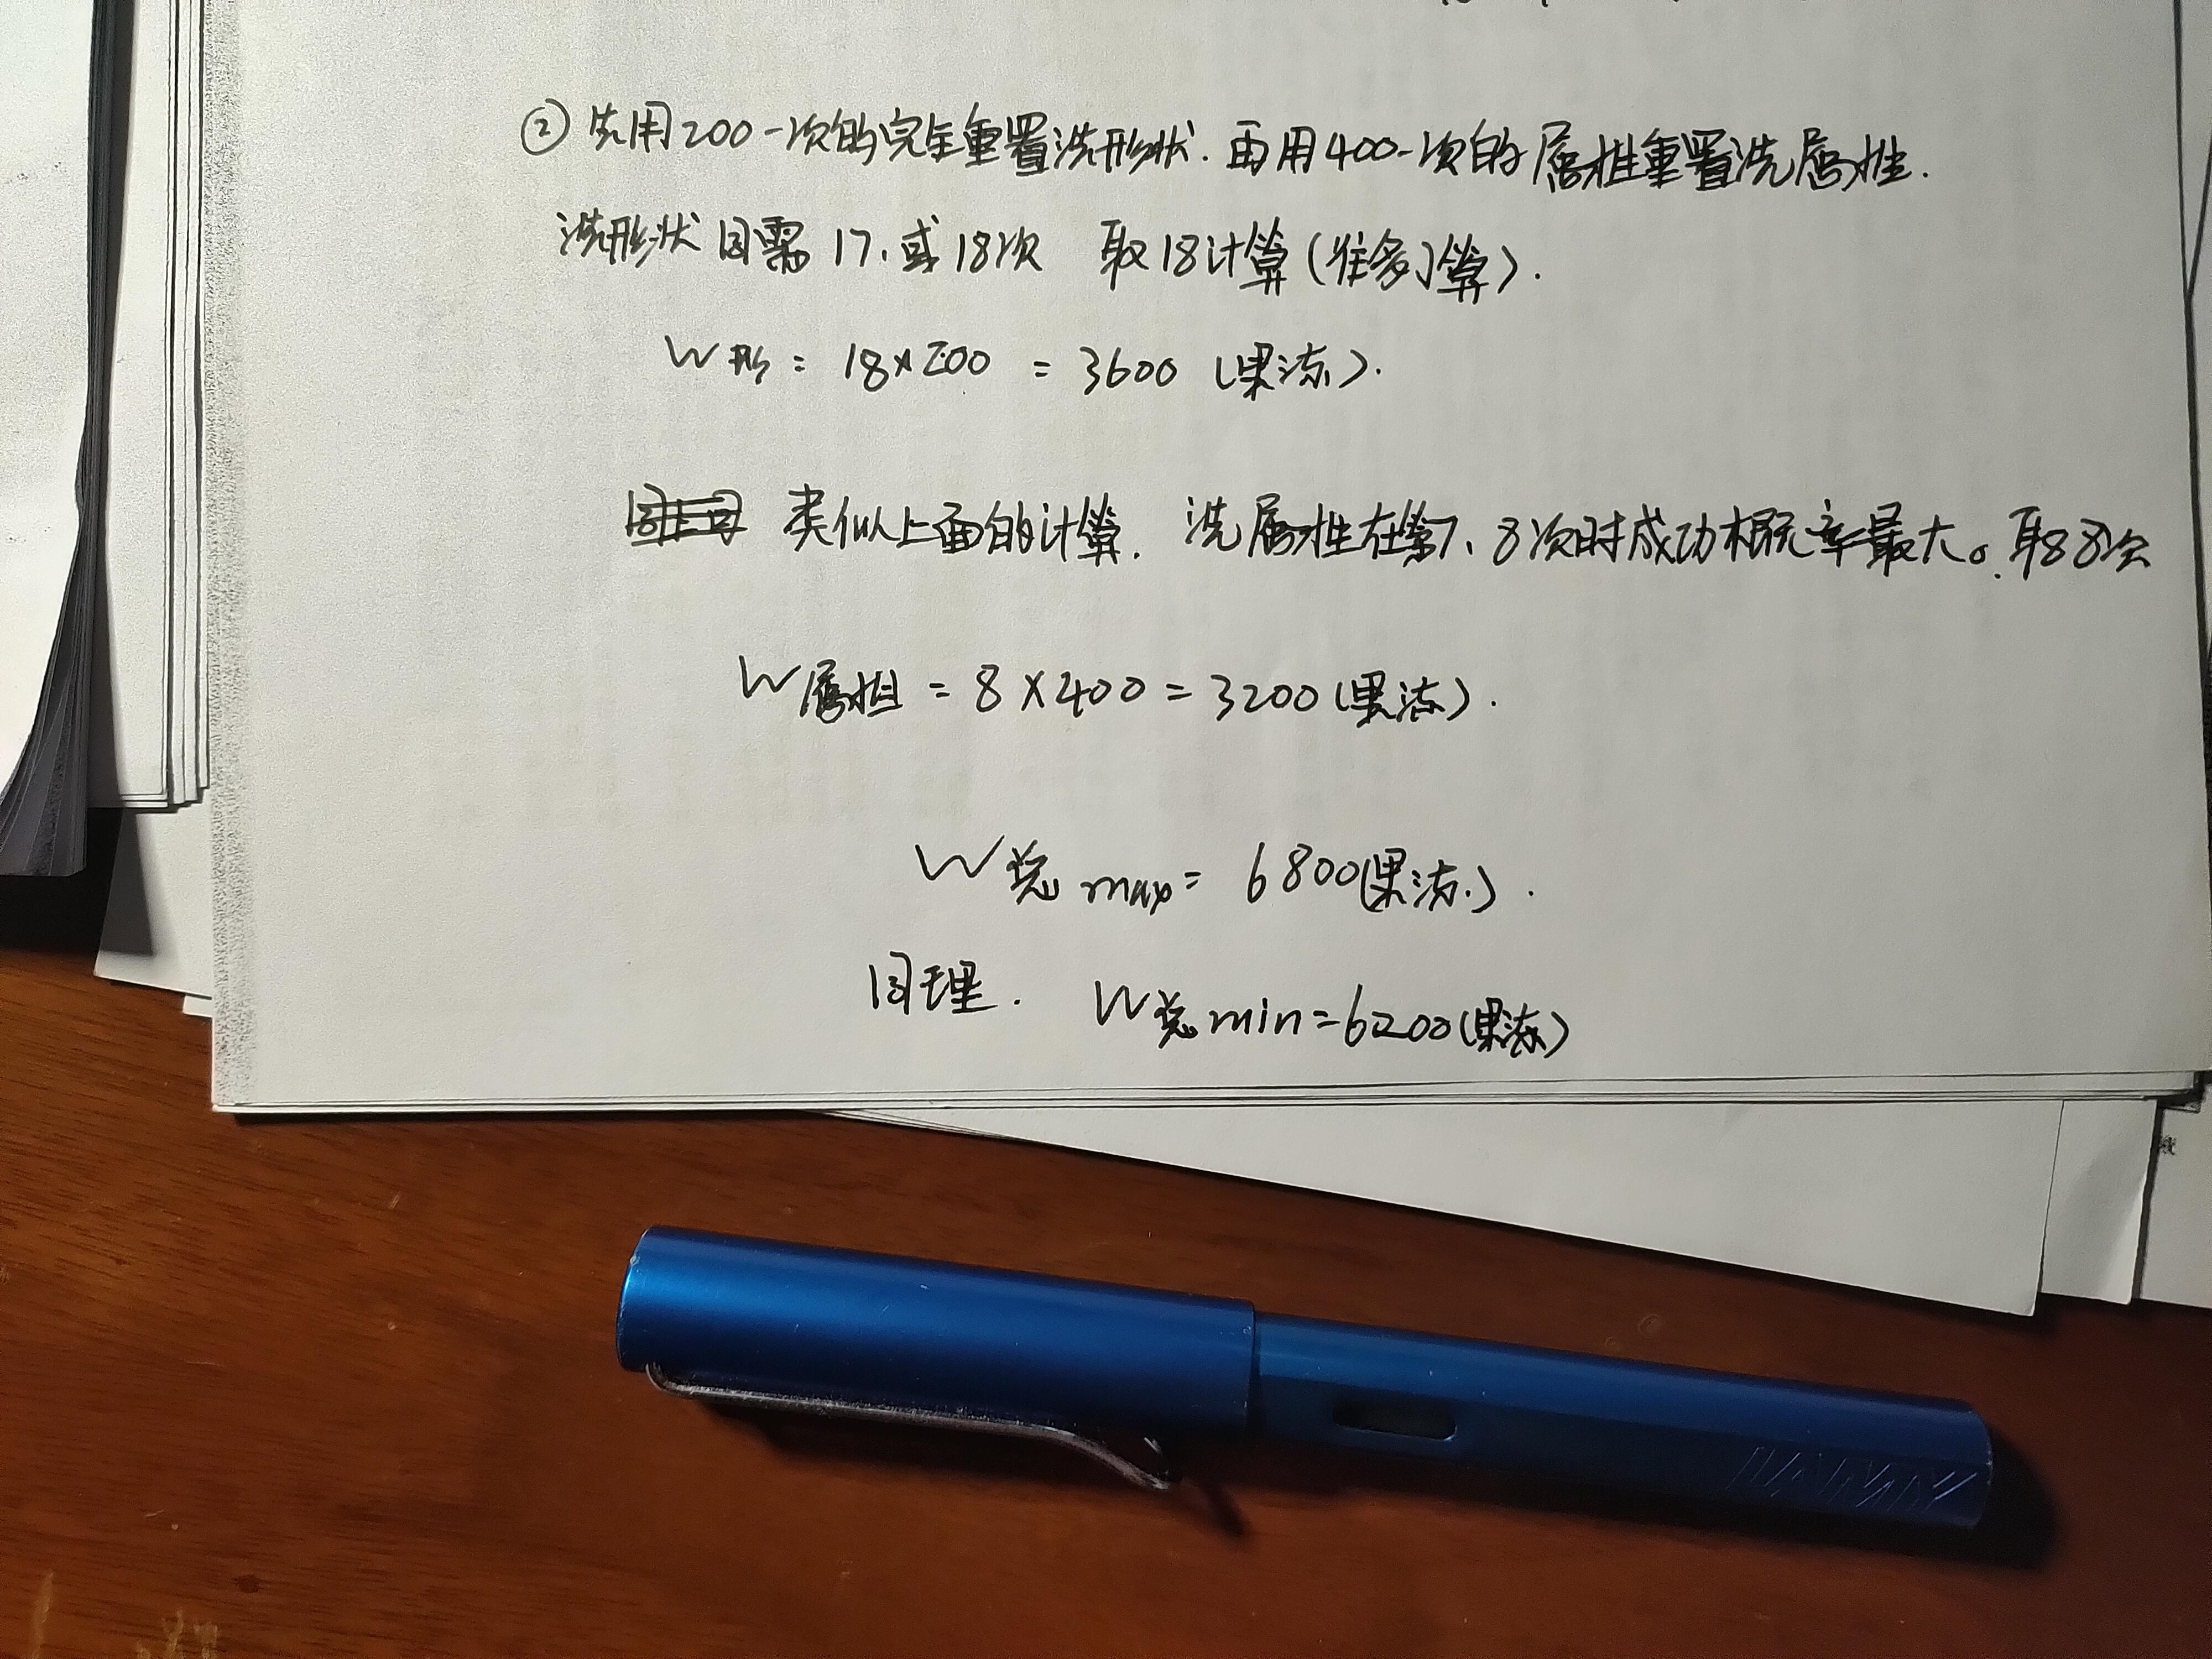 ② 先用200一次的完全重置洗形状.再用400一次的属性重置洗属性.
洗形状 因需 17.或18次 取18计算(往多了算).
W形 = 18×200 = 3600 (果冻).
类似上面的计算. 洗属性在第7、8次时成功概率最大。取8次
W属性 = 8×400 = 3200(果冻).
W总max = 6800(果冻).
同理. W总min=6200(果冻)
LAMY